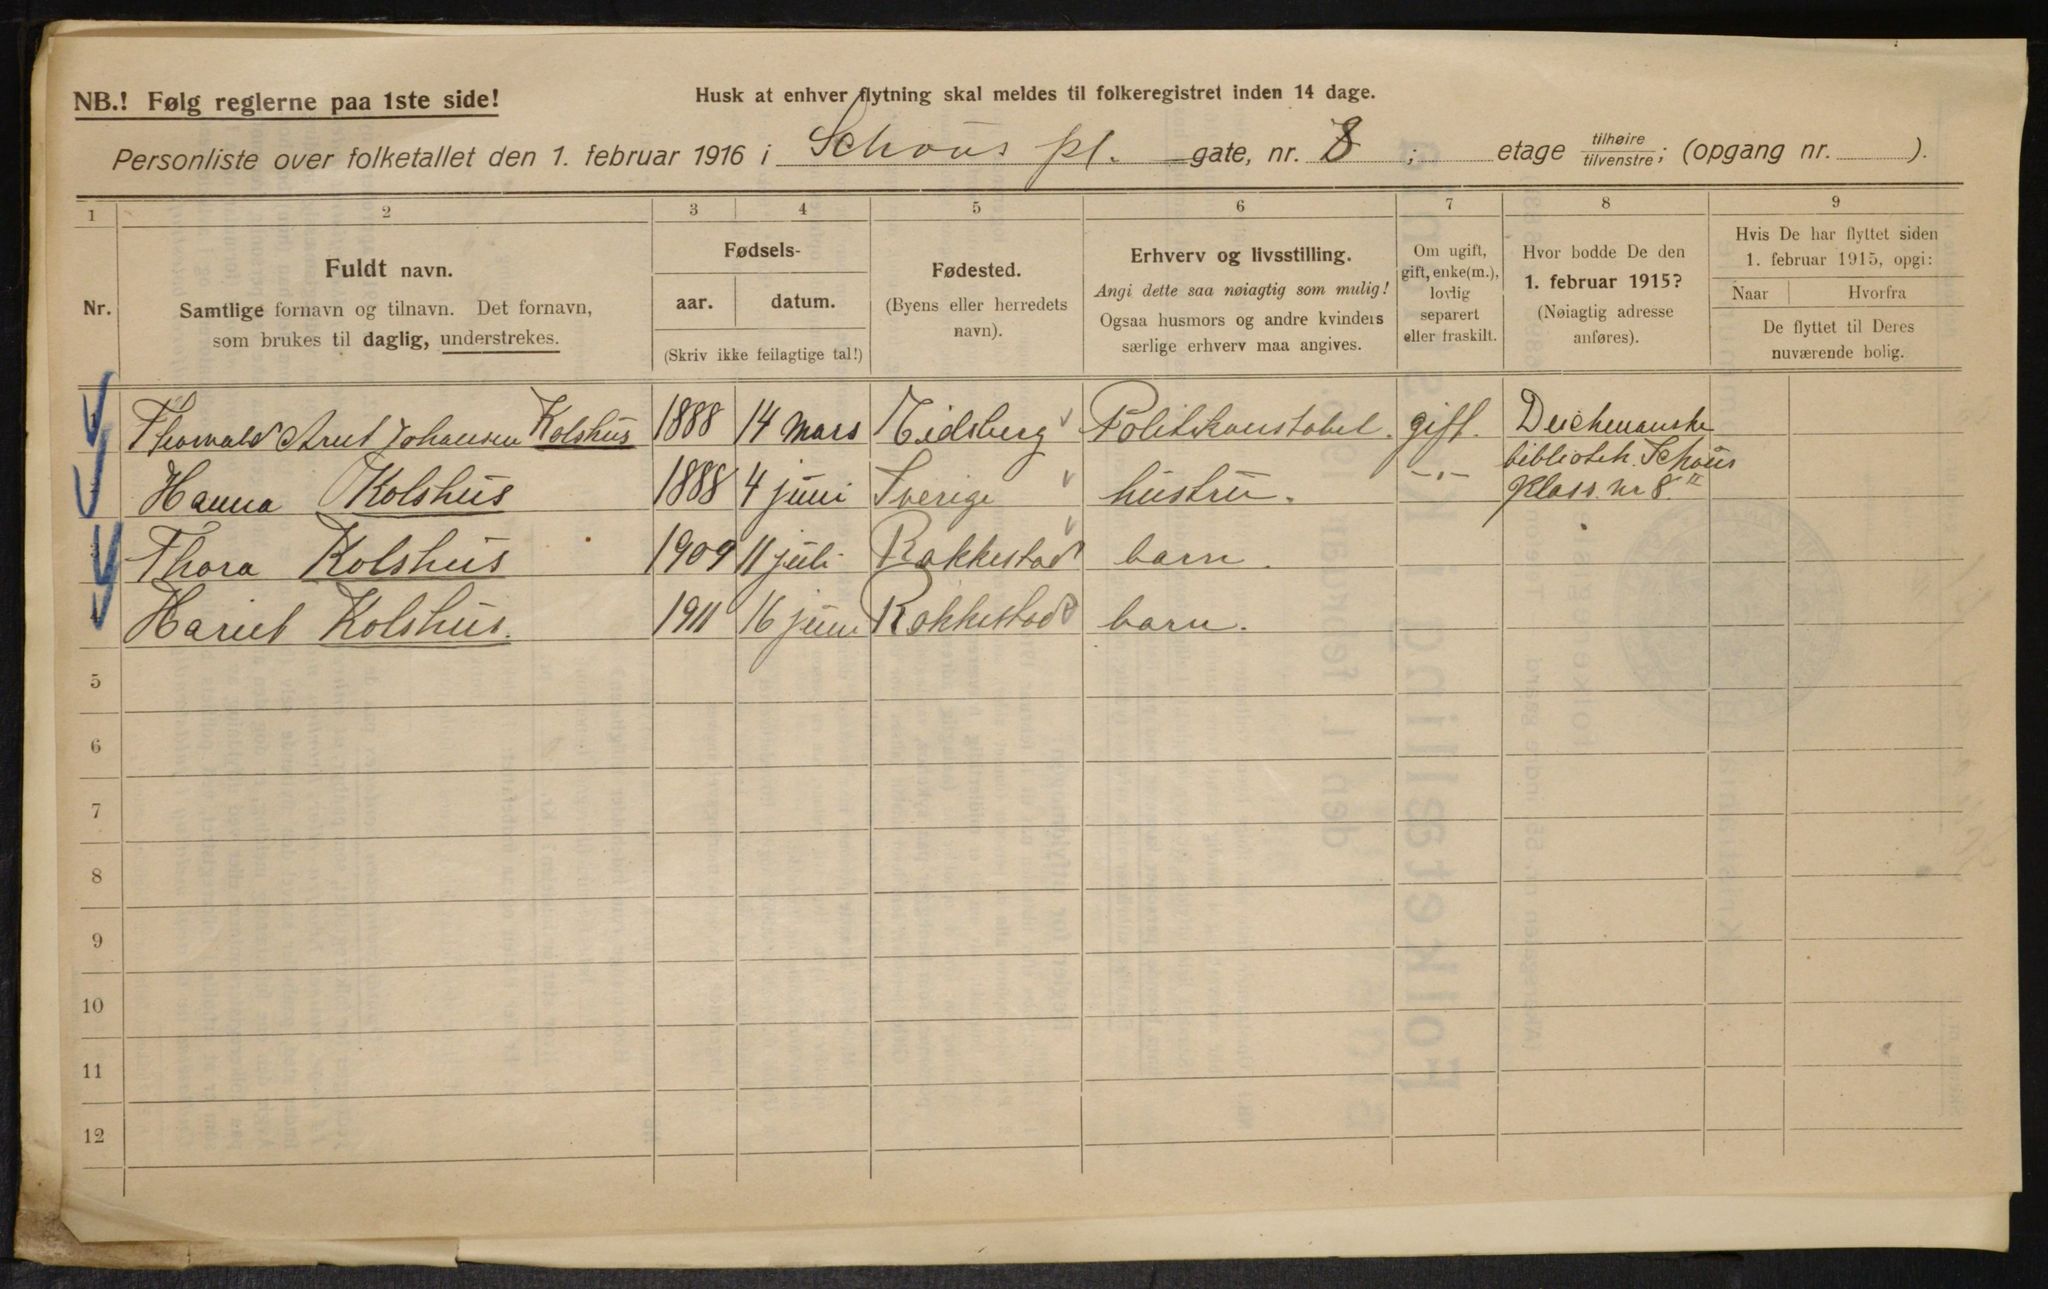 NB.! Følg reglerne paa 1ste side!
Husk at enhver flytning skal meldes til folkeregistret inden 14 dage.
Personliste over folketallet den 1. februar 1916 i Schous pl. gate, nr. 8; etage tilhøire/tilvenstre; (opgang nr. ).
1 2 3 4 5 6 7 8 9
Nr.
Fuldt navn.
Samtlige fornavn og tilnavn. Det fornavn,
som brukes til daglig, understrekes.
Fødsels-
aar. datum.
(Skriv ikke feilagtige tal!)
Fødested.
(Byens eller herredets
navn).
Erhverv og livsstilling.
Angi dette saa nøiagtig som mulig!
Ogsaa husmors og andre kvinders
særlige erhverv maa angives.
Om ugift,
gift, enke(m.),
lovlig
separert
eller fraskilt.
Hvor bodde De den
1. februar 1915?
(Nøiagtig adresse
anføres).
Hvis De har flyttet siden
1. februar 1915, opgi:
Naar Hvorfra
De flyttet til Deres
nuværende bolig.
Thorvald Arnt Johansen Kolshus 1888 14 mars Eidsberg Politikonstabel. gift. Deichmanske
bibliotek. Schous
Plass. nr 8.
Hanna Kolshus 1888 4 juni Sverige hustru. -"-
Thora Kolshus 1909 11 juli Rakkestad barn.
Hariet Kolshus. 1911 16 juni Rakkestad barn.
5
6
7
8
9
10
11
12